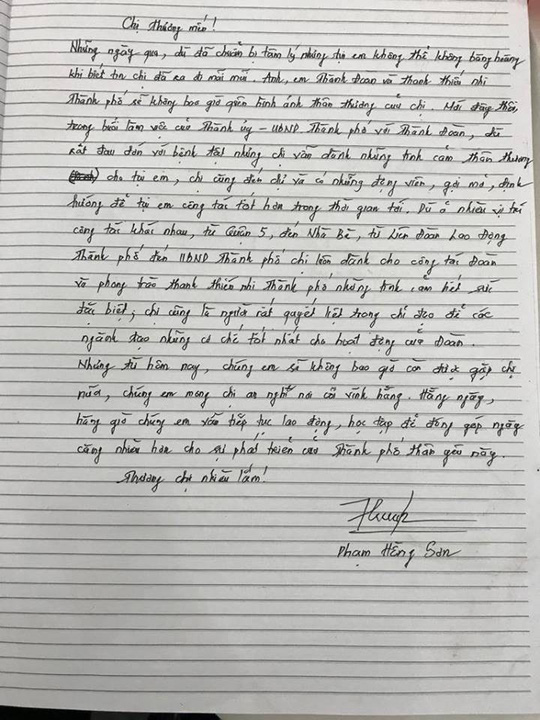 Chị thương mến!
Những ngày qua, dù đã chuẩn bị tâm lý nhưng tụi em không thể không bàng hoàng
khi biết tin chị đã ra đi mãi mãi. Anh, em Thành Đoàn và thanh thiếu nhi
Thành phố sẽ không bao giờ quên hình ảnh thân thương của chị. Mới đây thôi
trong buổi làm việc của Thành ủy - UBND Thành phố với Thành Đoàn, dù
rất đau đớn với bệnh tật nhưng chị vẫn dành những tình cảm thân thương
cho tụi em, chị cũng đến chỉ và có những động viên, gợi mở, định
hướng để tụi em công tác tốt hơn trong thời gian tới. Dù ở nhiều vị trí
công tác khác nhau, từ Quận 5, đến Nhà Bè, từ Liên Đoàn Lao Động
Thành phố đến UBND Thành phố chị luôn dành cho công tác Đoàn
và phong trào thanh thiếu nhi Thành phố những tình cảm hết sức
đặc biệt; chị cũng là người rất quyết liệt trong chỉ đạo để các
ngành tạo những cơ chế tốt nhất cho hoạt động của Đoàn.
Nhưng từ hôm nay, chúng em sẽ không bao giờ còn được gặp chị
nữa, chúng em mong chị an nghỉ nơi cõi vĩnh hằng. Hằng ngày,
hàng giờ chúng em vẫn tiếp tục lao động, học tập để đóng góp ngày
càng nhiều hơn cho sự phát triển của Thành phố thân yêu này.
Thương chị nhiều lắm!
Phạm Hồng Sơn